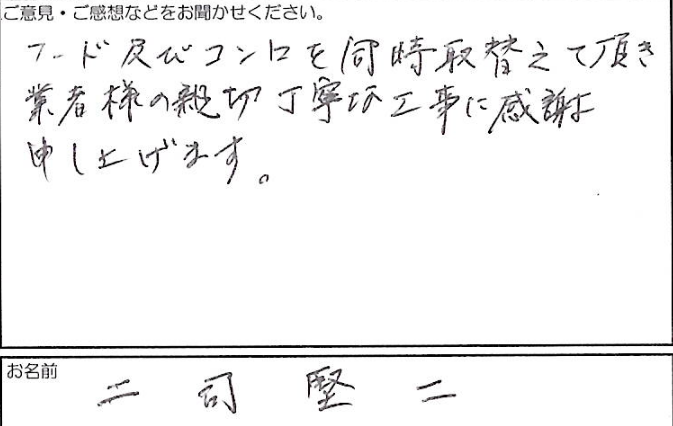 ご意見・ご感想などをお聞かせください。
フード及びコンロを同時取替えて頂き
業者様の親切丁寧な工事に感謝
申し上げます。
お名前
二司堅二